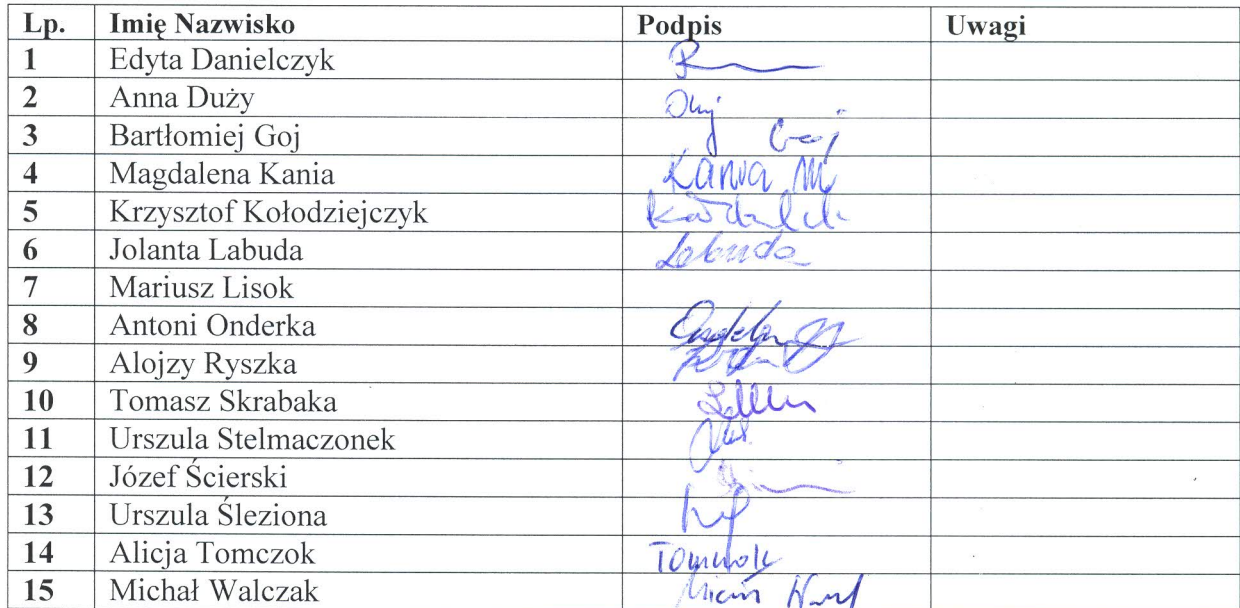 Lp. Imię Nazwisko Podpis Uwagi
1 Edyta Danielczyk
2 Anna Duży
3 Bartłomiej Goj Goj
4 Magdalena Kania Kania M
5 Krzysztof Kołodziejczyk
6 Jolanta Labuda Labuda
7 Mariusz Lisok
8 Antoni Onderka
9 Alojzy Ryszka
10 Tomasz Skrabaka
11 Urszula Stelmaczonek
12 Józef Ścierski
13 Urszula Śleziona
14 Alicja Tomczok Tomczok
15 Michał Walczak